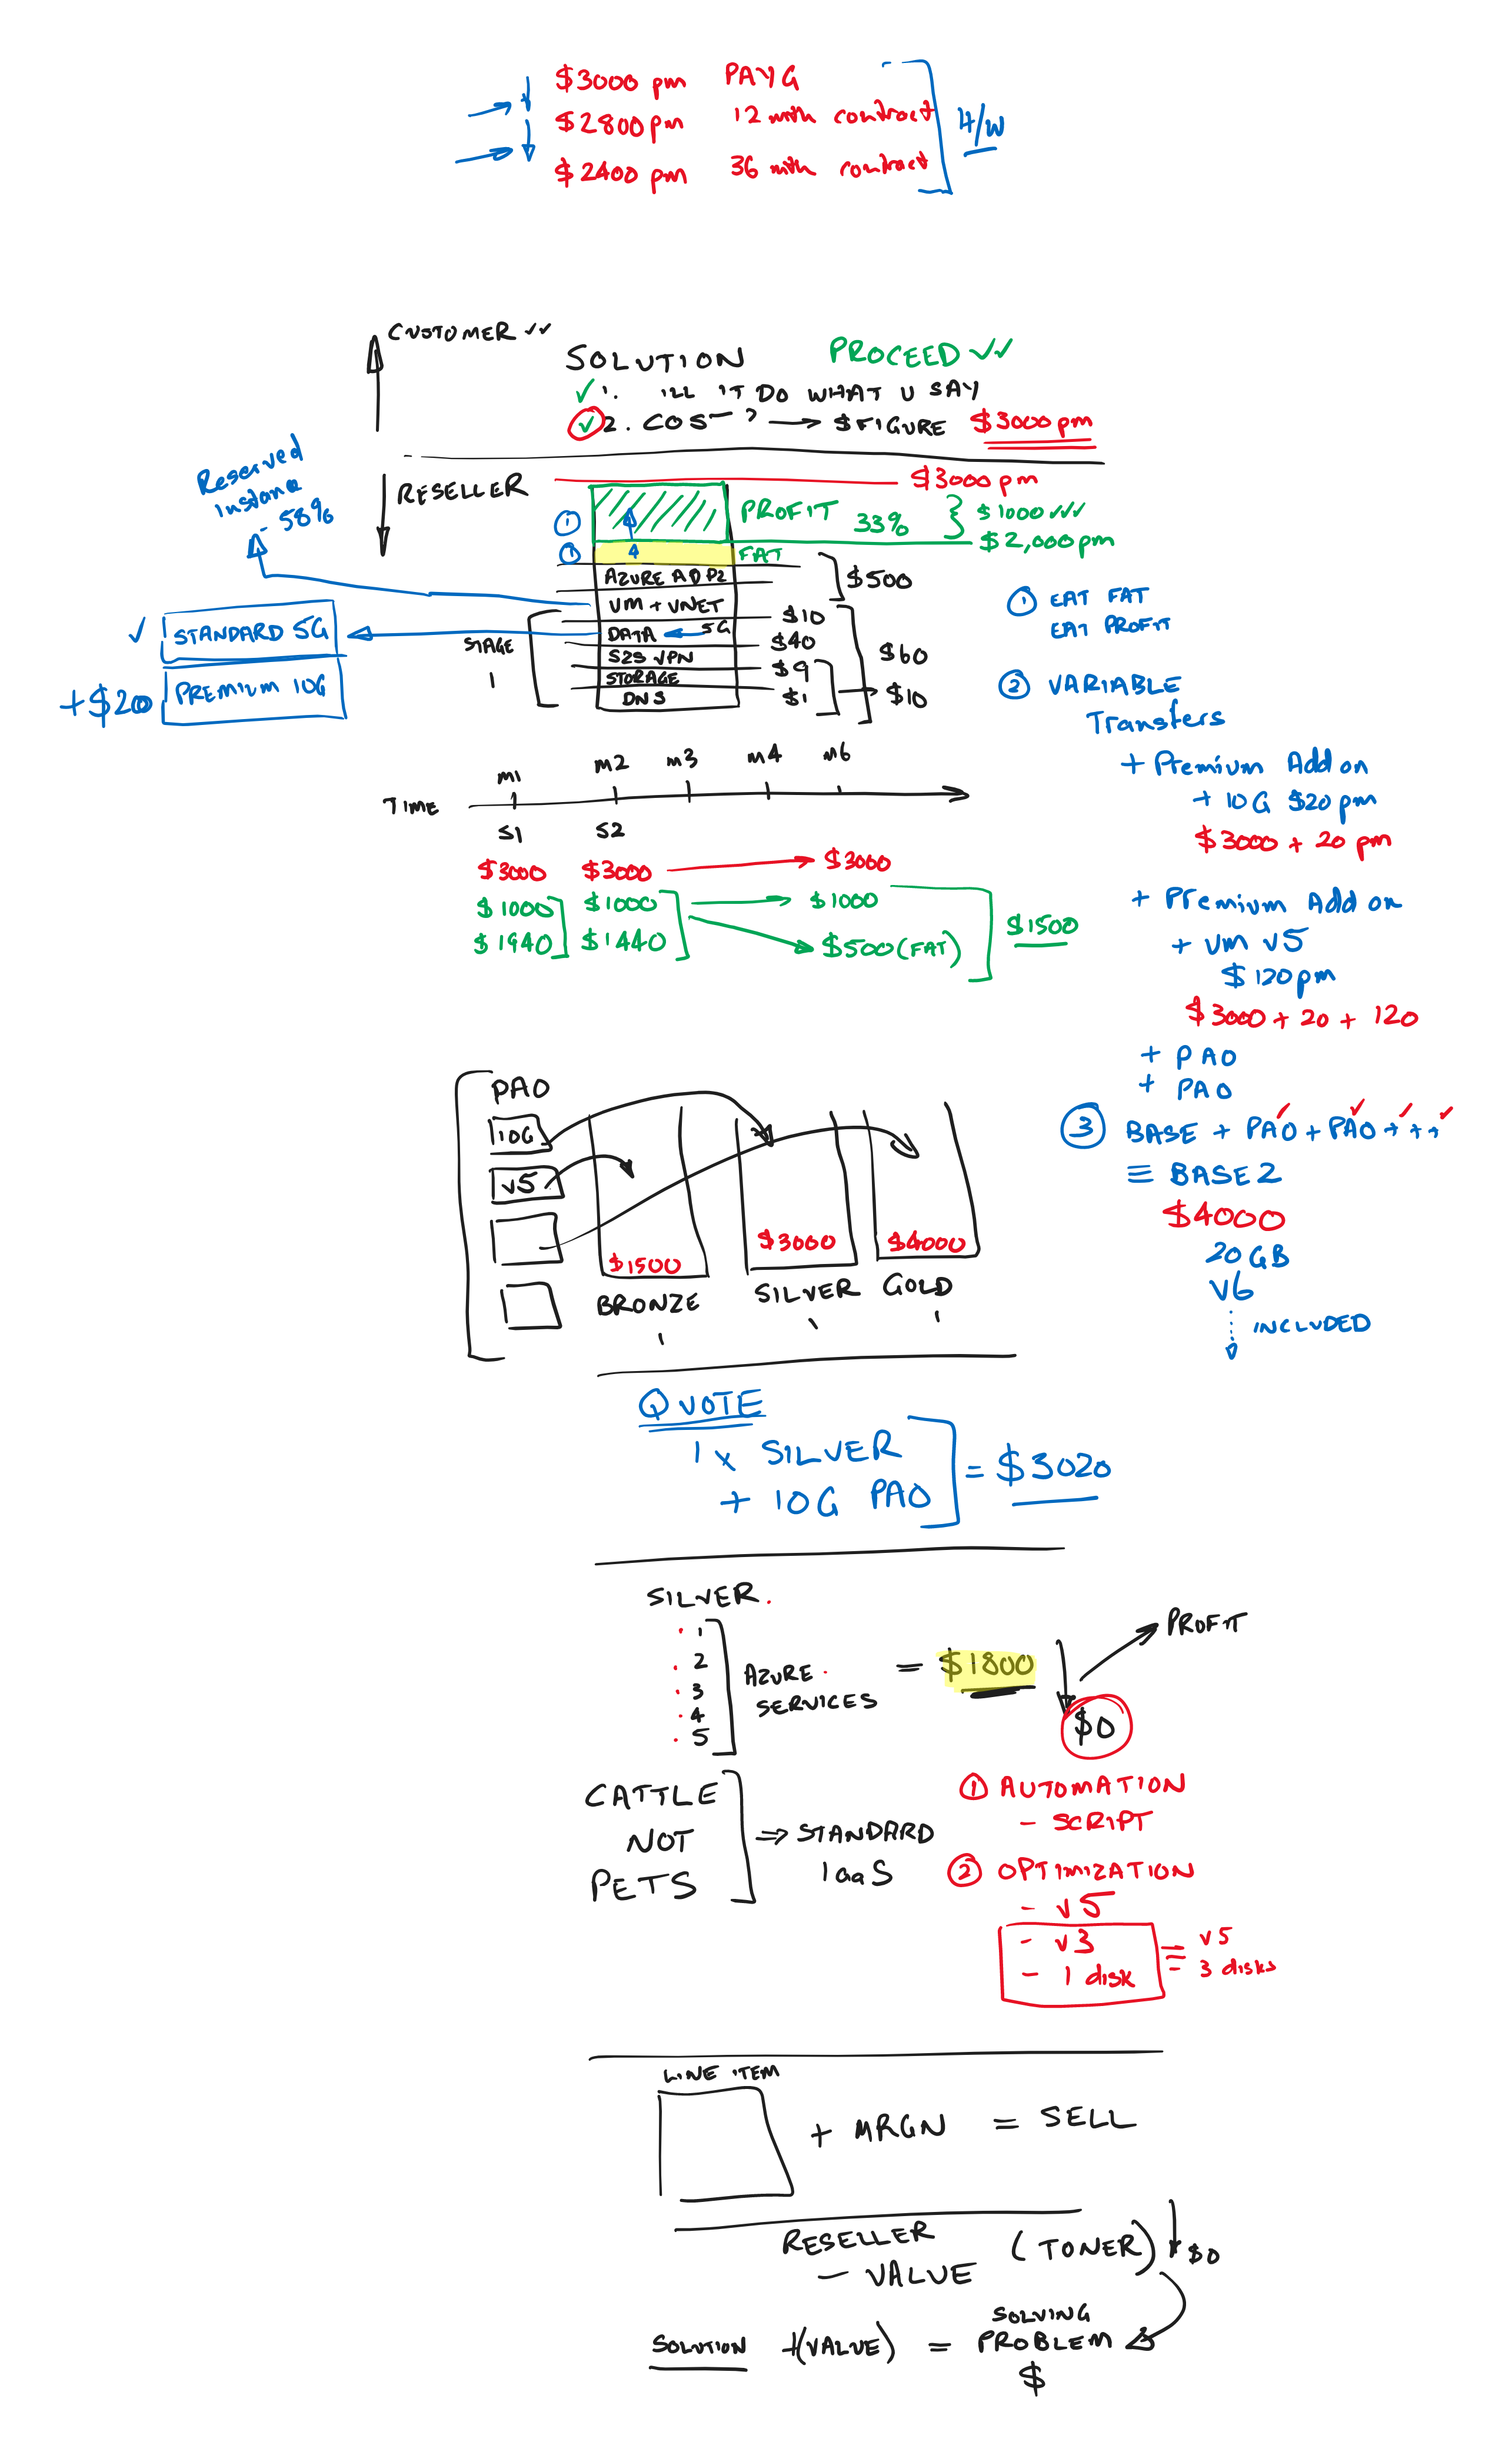 $3000 pm PAYG
$2800 pm 12 mth contract
$2400 pm 36 mth contract
H/W
CUSTOMER ✓✓
SOLUTION PROCEED ✓✓
✓ 1. ILL IT DO WHAT U SAY
✓ 2. COST? → $FIGURE $3000 pm
RESELLER
$3000 pm
Reserved
Instance
- 58%
① PROFIT 33% } $1000 ✓✓✓
$2,000 pm
① FAT
AZURE AD P2 $500
VM + VNET
$10
DATA ← 5G
$40
S2S VPN
$9
STORAGE
$1
DNS
$60
→ $10
STAGE
1
✓ STANDARD 5G
+$20 PREMIUM 10G
① EAT FAT
EAT PROFIT
② VARIABLE
Transfers
+ Premium Add on
+ 10G $20 pm
$3000 + 20 pm
+ Premium Add on
+ vm v5
$120 pm
$3000 + 20 + 120
+ PAO
+ PAO
③ BASE + PAO + PAO + + +
≡ BASE 2
$4000
20 GB
V6
INCLUDED
TIME
m1 m2 m3 m4 m6
S1 S2
$3000 $3000 → $3000
$1000 $1000 → $1000
$1940 $1440 → $500 (FAT)
$1500
PAO
10G
v5
$1500 $3000 $4000
BRONZE SILVER GOLD
QUOTE
1 x SILVER
+ 10G PAO
= $3020
SILVER.
1
2
3
4
5
AZURE
SERVICES
= $1800
PROFIT
$0
CATTLE
NOT
PETS
⇒ STANDARD
IaaS
① AUTOMATION
- SCRIPT
② OPTIMIZATION
- v5
- v3
- 1 disk
= v5
= 3 disks
LINE ITEM
+ MRGN = SELL
RESELLER (TONER) $0
- VALUE
SOLUTION +(VALUE) = SOLVING
PROBLEM
$